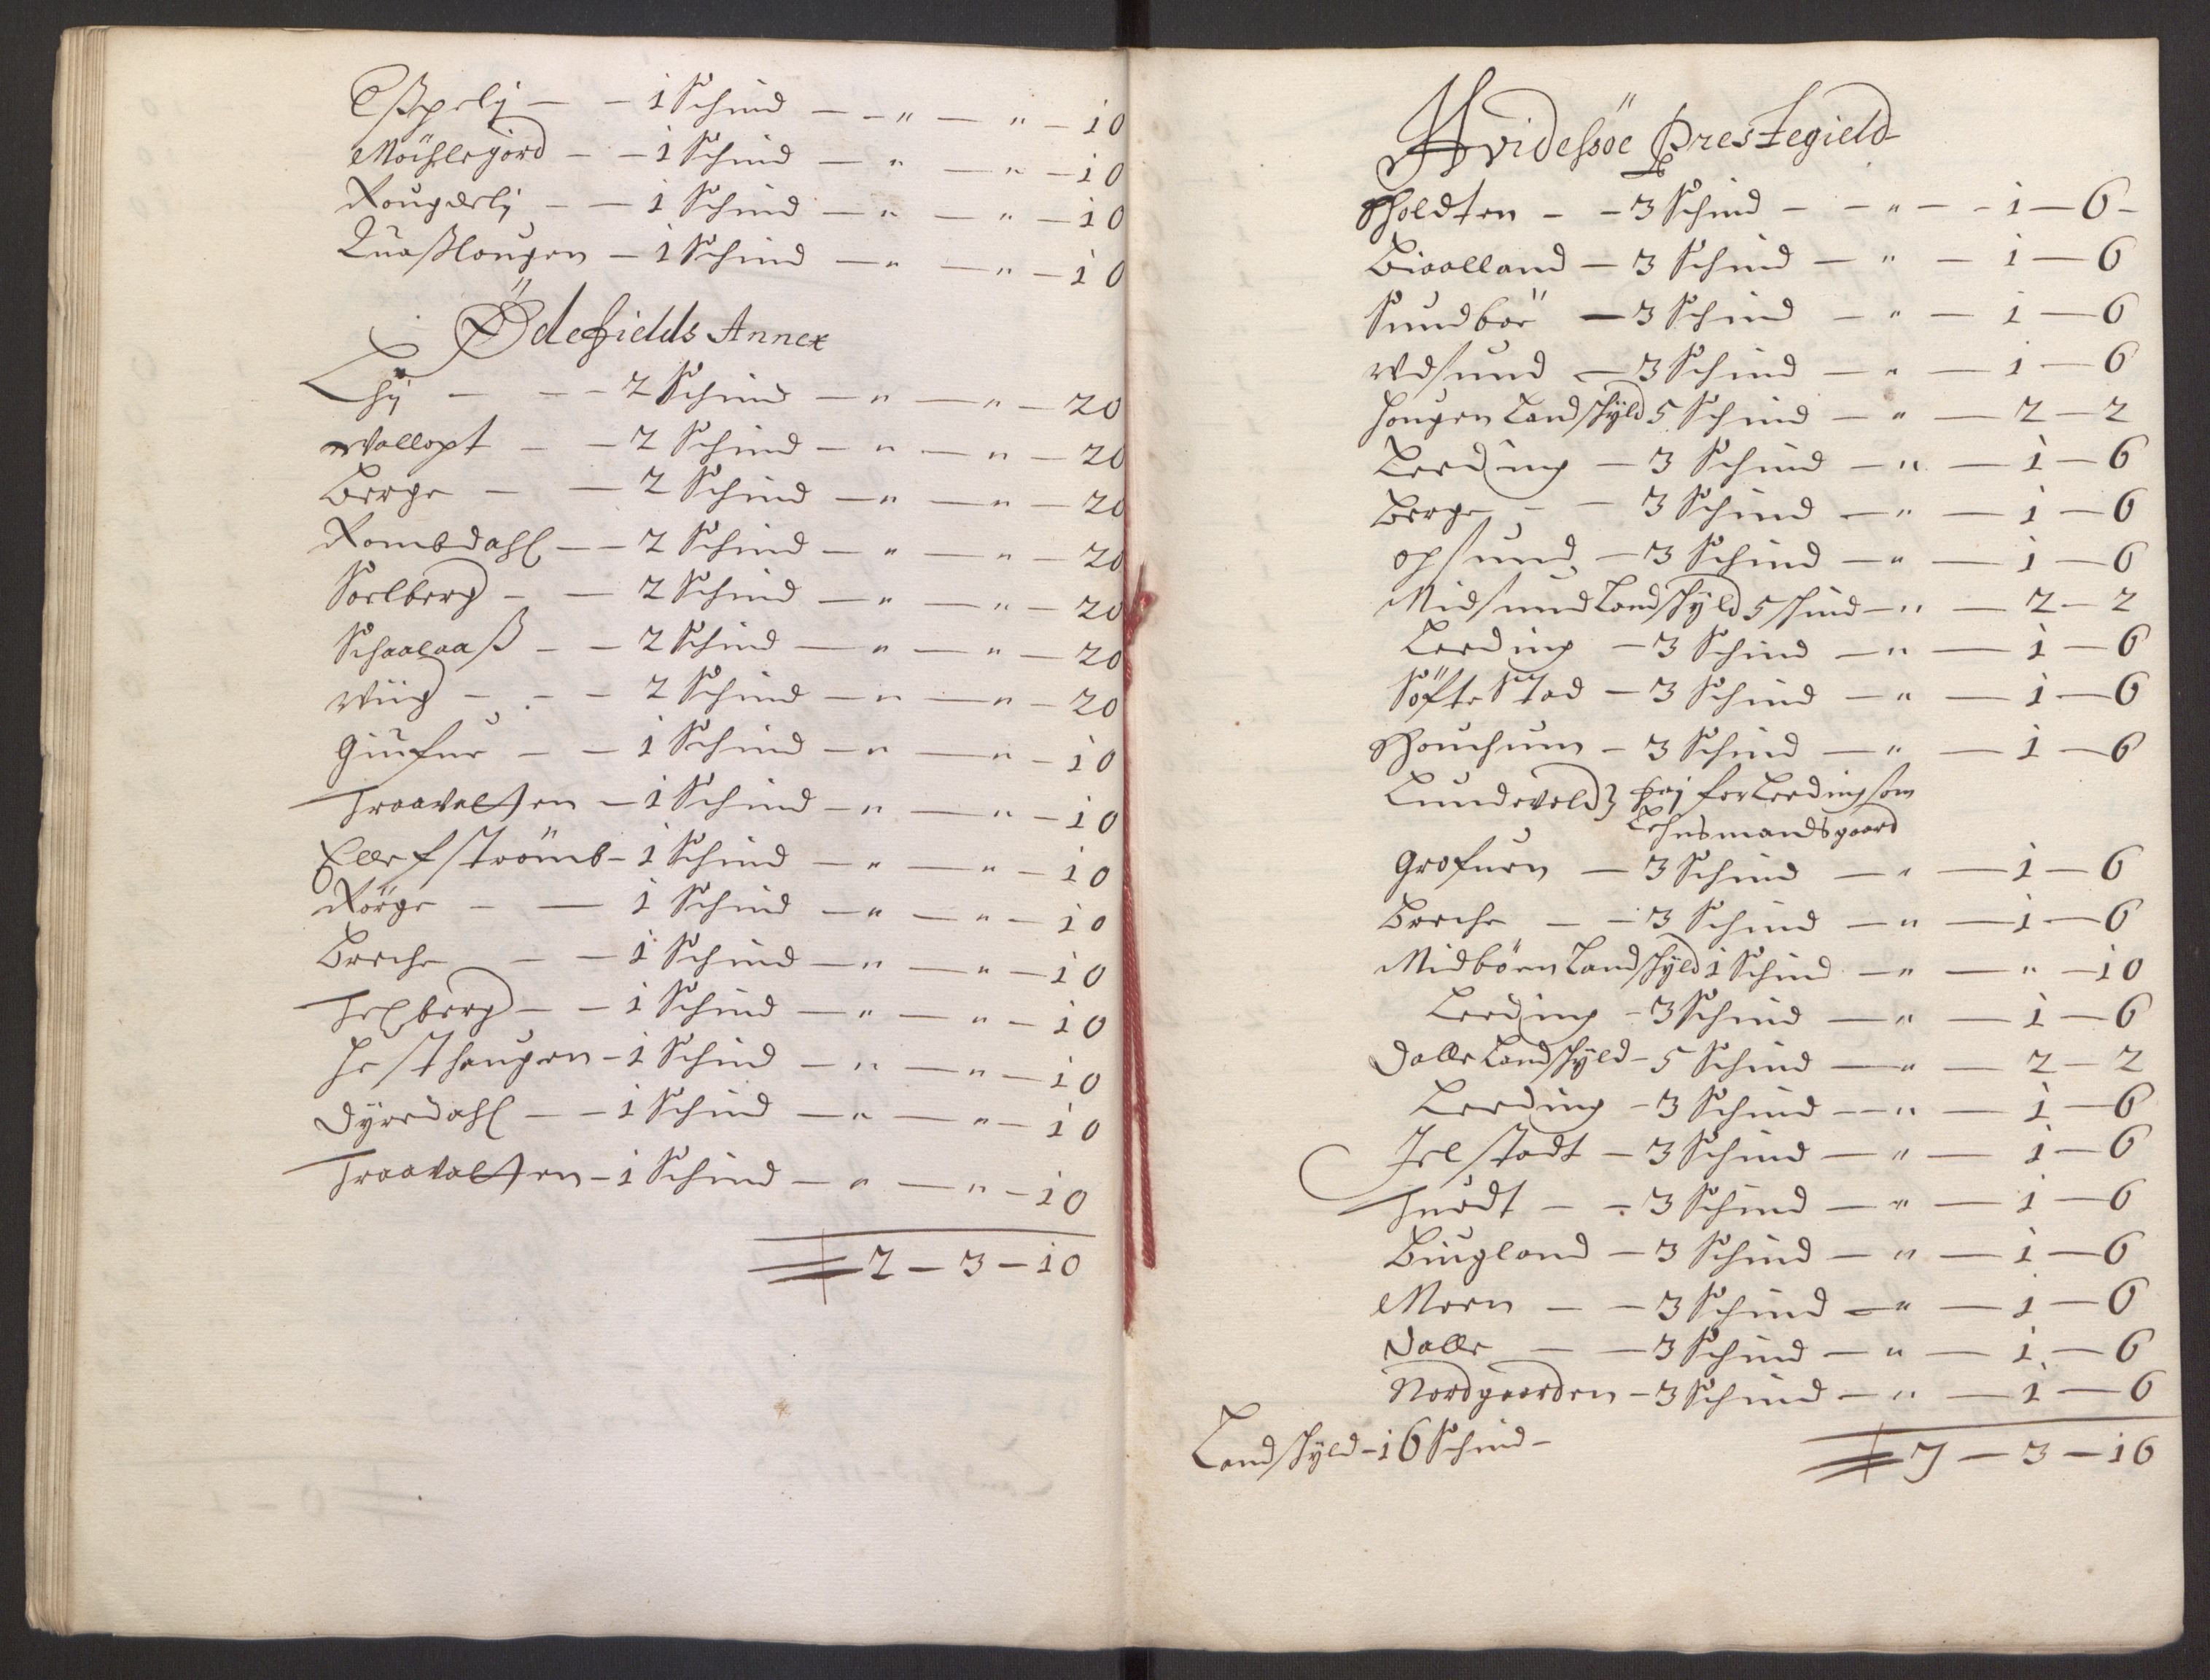 Eßpelj — — 1 Schind — — " — " — 10
Möchlegiord — — 1 Schind — " — " — 10
Rougdelj — — 1 Schind — " — " — 10
Quaßlougen — 1 Schind — " — " — 10
Ödefields Annex
Lhÿ — — — 2 Schind — " — " — 20
Wallopt — — 2 Schind — " — " — 20
Berge — — 2 Schind — " — " — 20
Rombdahl — — 2 Schind — " — " — 20
Soelberg — — 2 Schind — " — " — 20
Schaalaaß — — 2 Schind — " — " — 20
Wiig — — — 2 Schind — " — " — 20
Giufue — — 1 Schind — " — " — 10
Traavatten — 1 Schind — " — " — 10
Ellefströmb — 1 Schind — " — " — 10
Rörge — — 1 Schind — " — " — 10
Breche — — 1 Schind — " — " — 10
Texberg — — 1 Schind — " — " — 10
Hesthougen — 1 Schind — " — " — 10
Dÿredahl — — 1 Schind — " — " — 10
Traavatten — 1 Schind — " — " — 10
2 — 3 — 10
Hvidesöe Prestegield
Holdten — — 3 Schind — — " — — 1 — 6 —
Biaalland — 3 Schind — " — 1 — 6
Sundböe — 3 Schind — " — 1 — 6
Udsund — 3 Schind — " — 1 — 6
Hougen Landschÿld 5 Schind — " — 2 — 2
Leeding — 3 Schind — " — 1 — 6
Berge — — 3 Schind — " — 1 — 6
Opsund — 3 Schind — " — 1 — 6
Midsund Landschÿld 5 schind — " — 2 — 2
Leeding — 3 Schind — " — 1 — 6
Söftestad — 3 Schind — " — 1 — 6
Houchum — 3 Schind — " — 1 — 6
Lundevold} frj for Leeding som
Lehnsmandsgaard
Grofuen — 3 Schind — " — 1 — 6
Breche — — 3 Schind — " — 1 — 6
Midböen Landschÿld 1 Schind — " — " — 10
Leeding — 3 Schind — " — 1 — 6
Dalle Landschÿld — 5 Schind — " — 2 — 2
Leeding — 3 Schind — " — 1 — 6
Irlstadt — 3 Schind — " — 1 — 6
Tuedt — — 3 Schind — " — 1 — 6
Biugland — 3 Schind — " — 1 — 6
Moen — — 3 Schind — " — 1 — 6
Dalle — — 3 Schind — " — 1 — 6
Nordgaarden — 3 Schind — " — 1 — 6
Landschÿld — 16 Schind —
7 — 3 — 16